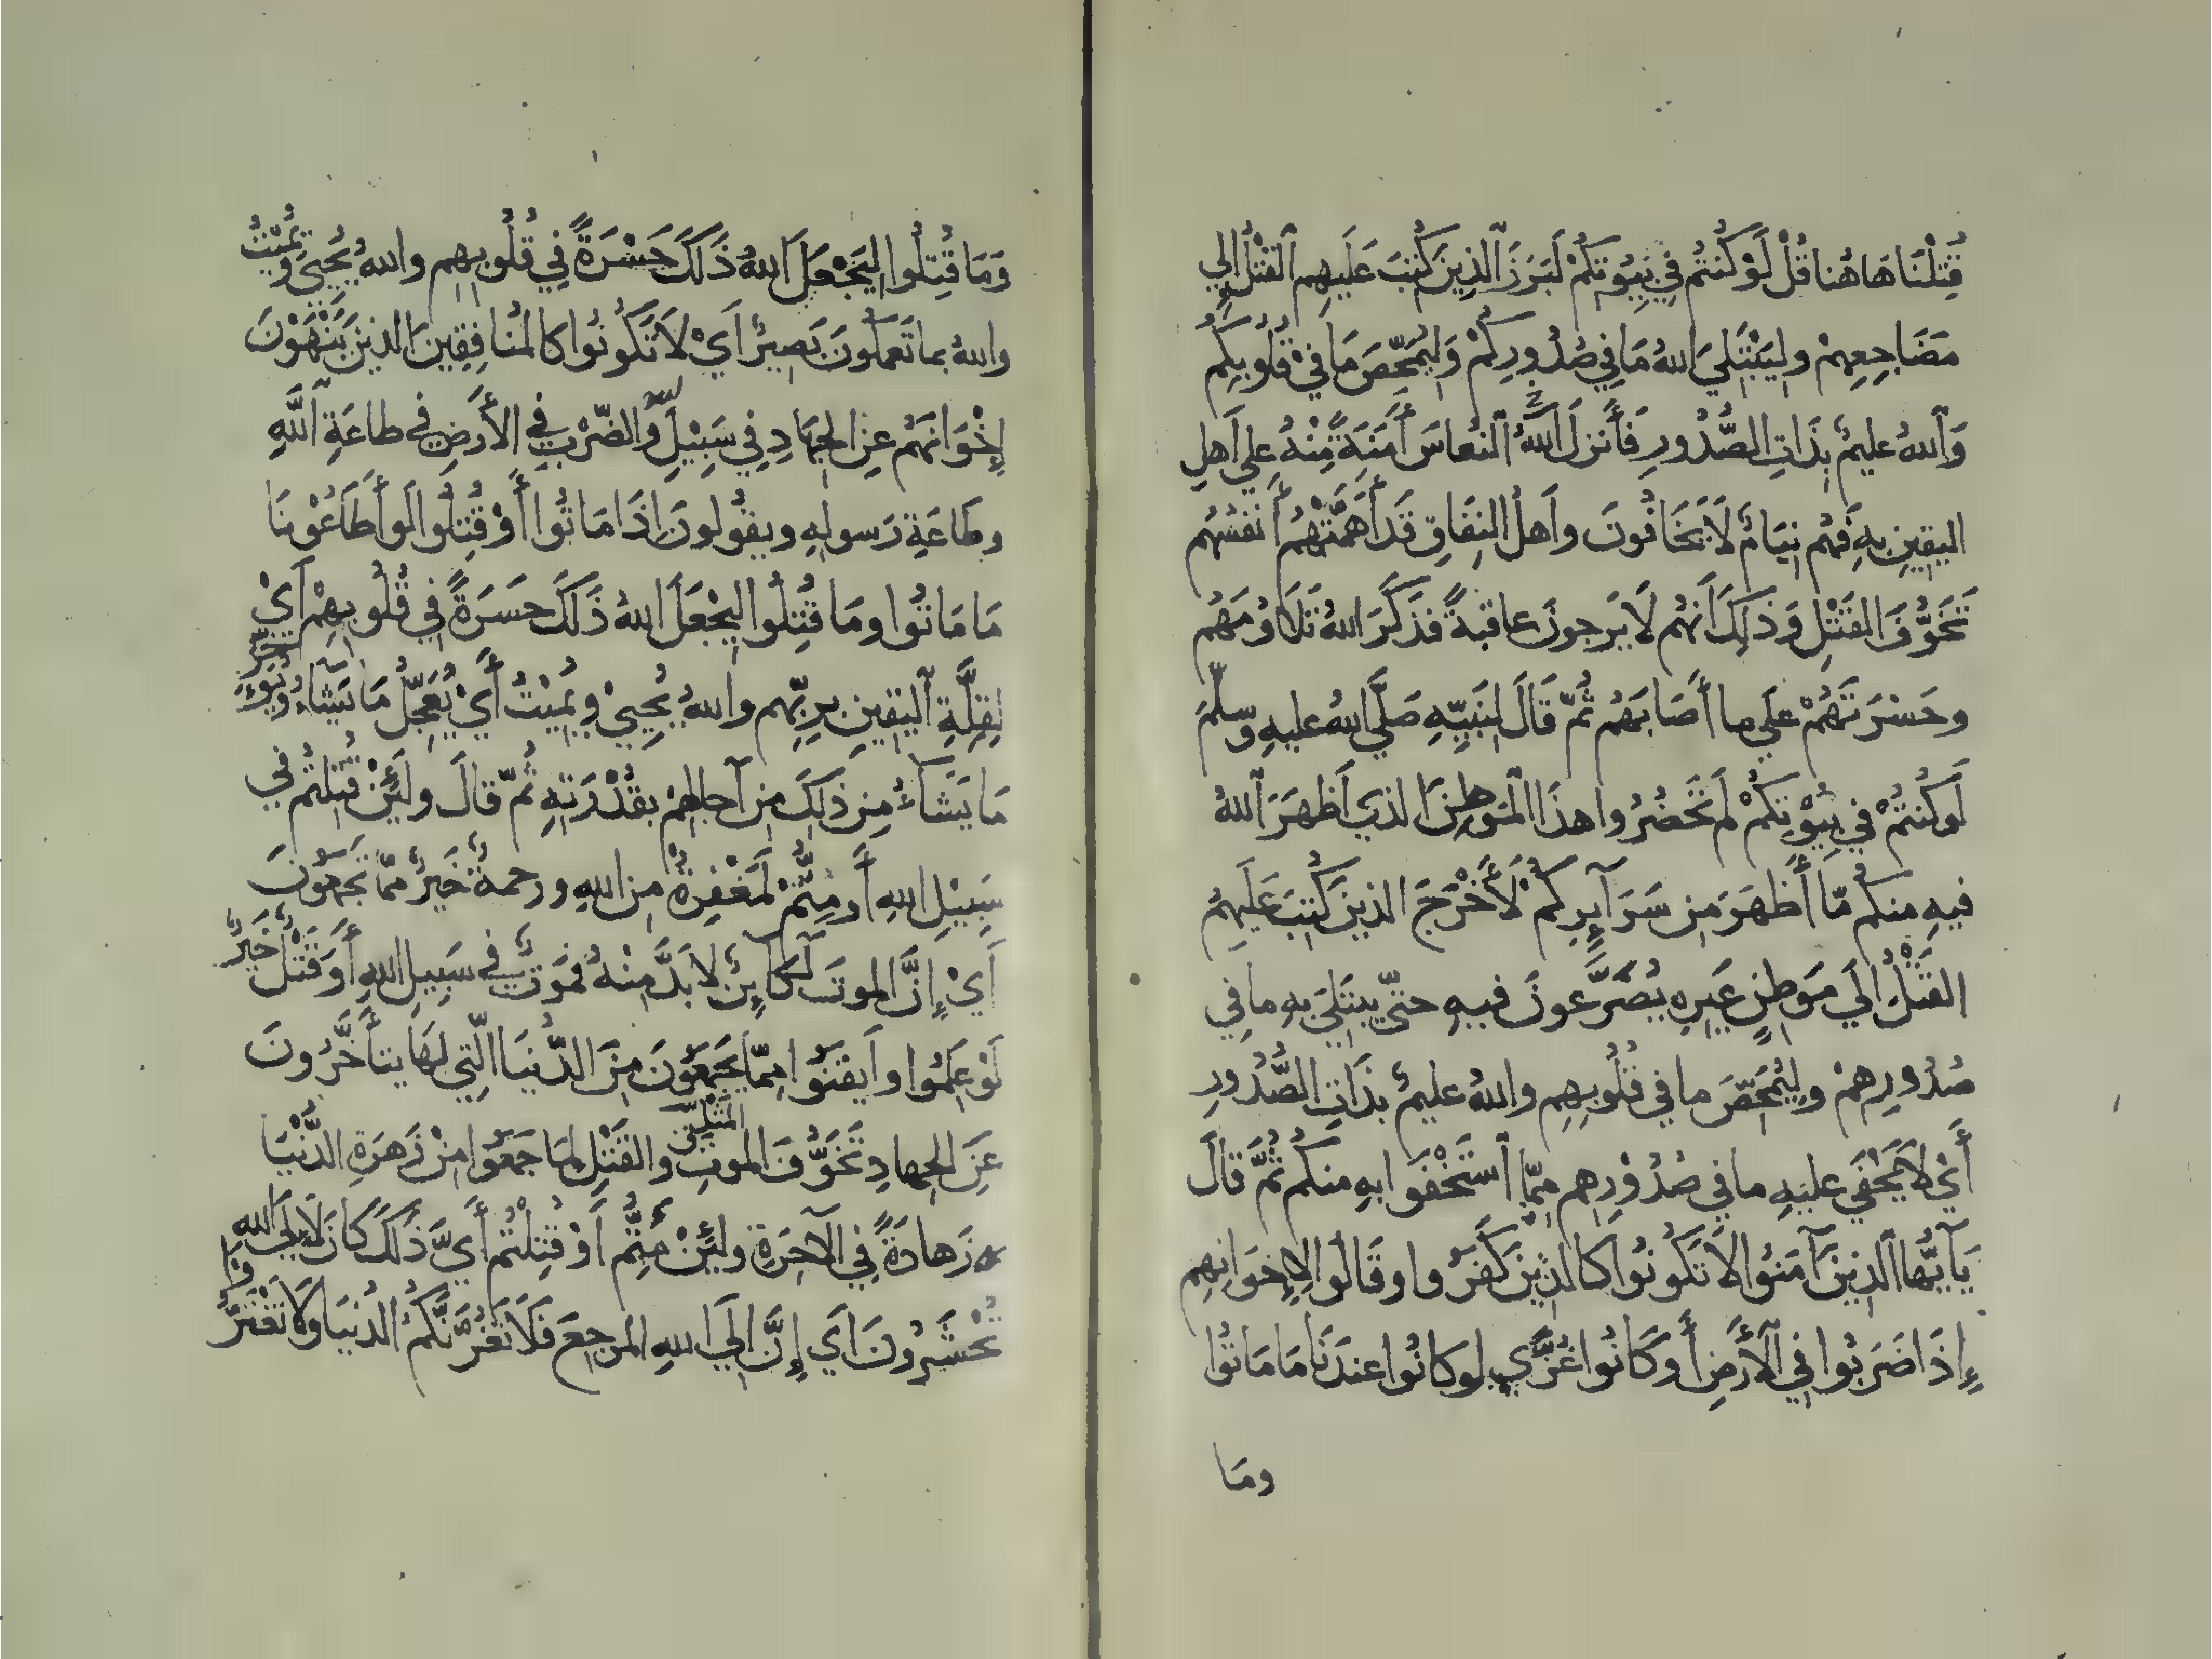 قُتِلْنَا هَاهُنا قُلْ لَوْ كُنتُم فِي بُيُوتِكُمْ لَبَرَزَ ٱلَّذِينَ كُتِبَ عَلَيهِم ٱلقَتْلُ إِلي
مَضَاجِعِهِمْ وليَبْتَلِيَ اللهُ مَا فِي صُدُورِكُمْ وَليُمَحِّصَ مَا فِي قُلُوبِكُم
وَٱللهُ عليمٌ بِذَاتِ الصُّدُورِ فَأَنزلَ ٱللَّهُ ٱلنعاسَ أَمَنَةً مِّنْهُ علي أَهلِ
اليقينِ بهِ فَهُم نِيَامٌ لَا يَخَافُونَ وأَهلُ النِفَاقِ قَد أَهَمَّتْهُم أَنفُسُهُم
تَخَوُّفَ القَتْلِ وَذَلِكَ أَنهُم لَا يَرجونَ عاقبةً فذَكَرَ اللهُ تَلَاوُمَهُم
وحَسْرَتَهُمْ علَي ما أَصَابَهُم ثُمّ قَالَ لِنَبِيِّهِ صَلَّي اللهُ عليهِ وسلّمَ
لَو كُنتُمْ في بُيُوْتِكُمْ لَم تَحضُرُوا هذَا المَوطِنَ الذي أَظهَرَ ٱللهُ
فيهِ منكُم مّا أَظهَرَ من سَرَآيِرِكُمْ لَأَخْرَجَ الذينَ كُتبَ عَلَيهِمُ
القَتْلُ إِلَي مَوطنٍ غَيرِهِ يُصَرَّعونَ فيهِ حتّي يبتَلَيَ بهِ ما فِي
صُدُورِهمْ وليُمَحِّصَ ما في قُلُوبِهِم واللهُ عليمٌ بذَاتِ الصُّدُورِ
أَيْ لَا يَخْفَي عليهِ ما في صُدُوْرِهم مِمّا ٱستَخْفَوا بهِ منكُم ثُمَّ قالَ
يَآ أَيُّها ٱلذينَ آمَنُوا لَا تَكُونُوا كَالذينَ كَفَرُوا وقَالُوا لِإِخوَانِهِم
إِذَا ضَرَبُوا فِي الأَرضِ أَو كَانُوا غُزًّي لو كَانُوا عندَنَا مَا مَاتُوا
ومَا
وَمَا قُتِلُوا ليَجْعَلَ اللهُ ذَلَكَ حَسْرَةً فِي قُلُوبِهِم واللهُ يُحيِي ويُمْيْتُ
واللهُ بما تَعمَلُونَ بَصِيرٌ أَيْ لَا تَكُونُوا كَالمُنافِقِينَ الذينَ يَنْهَوْنَ
إِخْوَانَهُم عنِ الجهَادِ فِي سَبِيْلِ اللهِ وَالضّرْبِ فِي الأَرضِ في طاعَةِ ٱللَّهِ
وطَاعَةِ رَسولِهِ ويقُولونَ إِذَا مَاتُوا أَوْ قُتِلُوا لَو أَطَاعُوْنَا
مَا مَاتُوا ومَا قُتِلُوا ليجْعَلَ اللهُ ذَلَكَ حسَرَةً في قُلُوبِهِمْ أَيْ
لِقِلَّةِ ٱليقينِ بِرِبّهِم واللهُ يُحيِيْ ويُمِيْتُ أَيْ يُعَجِّلُ مَا يَشَاءُ ويُؤَخِّرُ
مَا يَشَآءُ من ذَلَكَ من آجالِهمْ بقُدْرَتِهِ ثُمّ قالَ ولَئِنْ قُتِلتُم في
سَبِيْلِ اللهِ أَو مِتُّمْ لَمَغْفِرةٌ من اللهِ ورحمةٌ خَيرٌ ممّا تَجمَعونَ
أَيْ إِنَّ الموتَ لَكَآئِنٌ لا بدَّ مِنْهُ فموَتٌ في سَبِيلِ اللهِ أَو قَتْلٌ خَيرٌ
لَوْ عَلِمُوا وأَيقَنُوا مِمّا يَجمَعُونَ مِنَ الدُّنيَا الّتِي لَهَا يتأَخَّرُونَ
عَنِ الجِهادِ تَخَوُّفَ الموتِ والقَتْلِ لِمَا جَمَعُوا مِنْ زَهرَةِ الدُّنْيَا
زَهادَةً فِي الآخِرَةِ ولَئِنْ مُتُّم أَوْ قُتِلْتُم أَيَّ ذَلَكَ كَانَ لَإِلَي اللهِ
تُحْشَرُونَ أَي إِنَّ إِلَي اللهِ المرجِعَ فَلَا تَغُرَّنَّكُمُ الدنيَا ولَا تَغْتَرُّوا